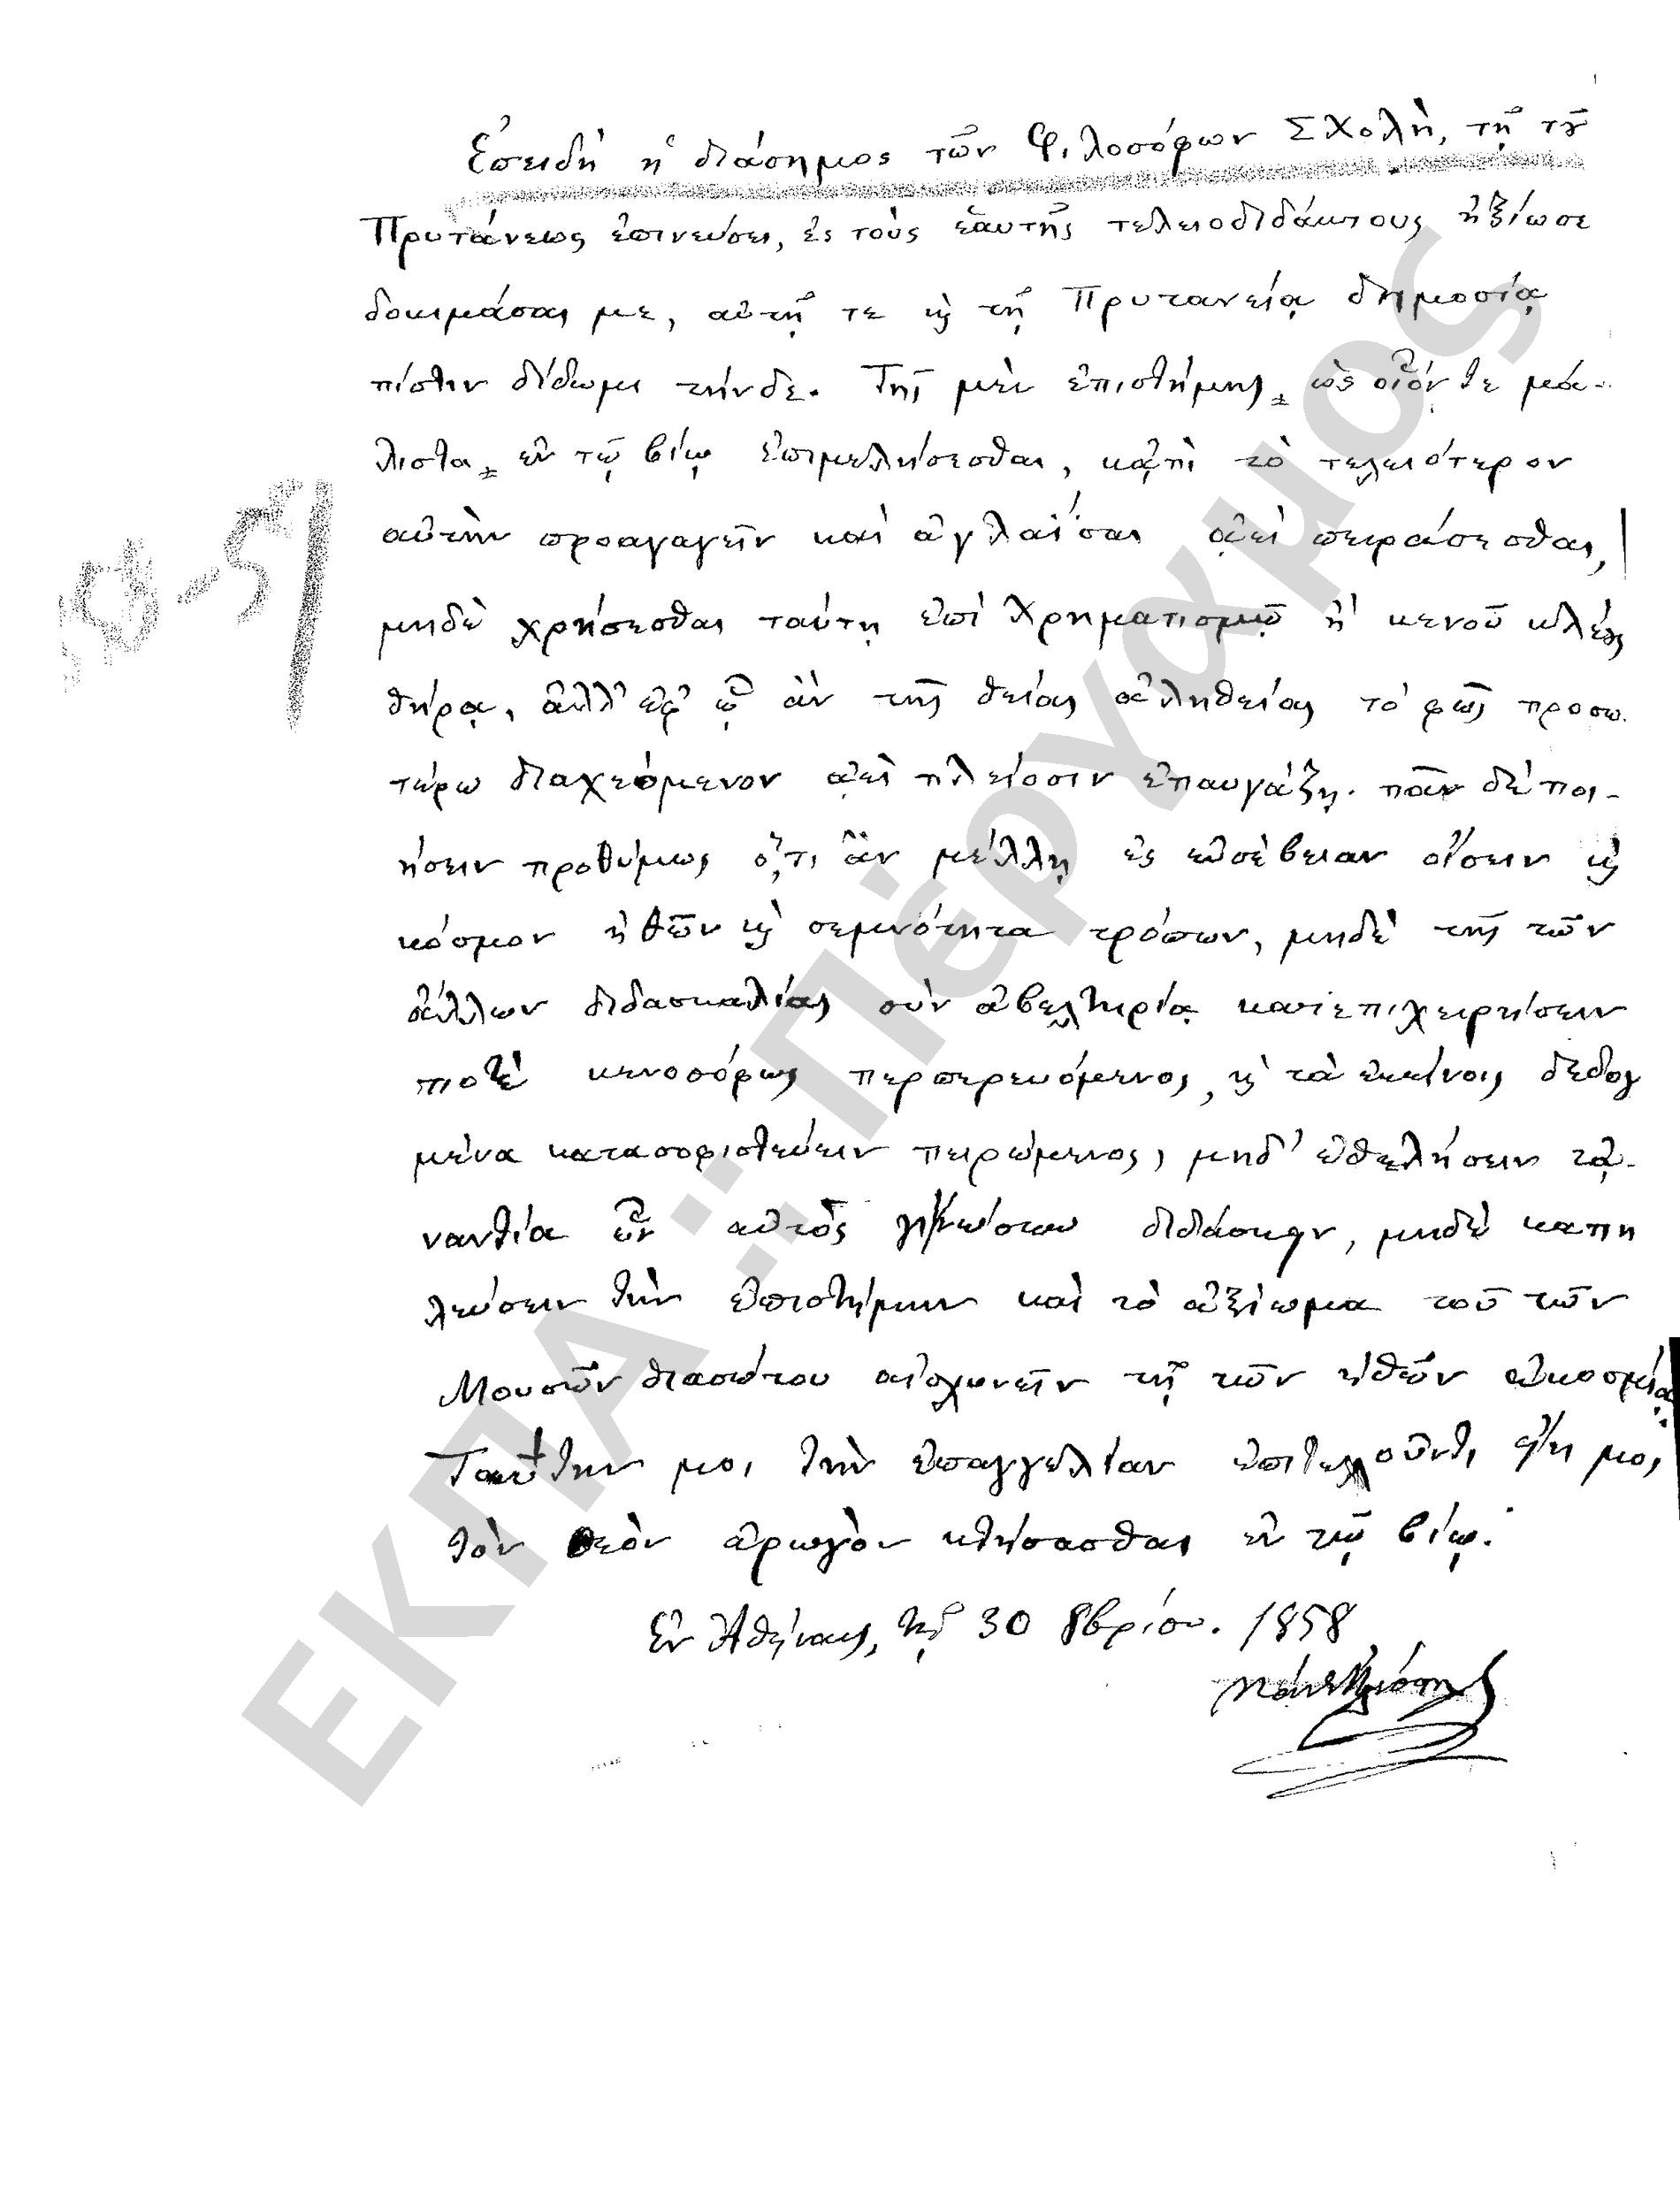 Ἐπειδὴ ἡ διάσημος τῶν Φιλοσόφων Σχολὴ, τῇ τοῦ
Πρυτάνεως ἐπινεύσει, ἐς τοὺς ἑαυτῆς τελειοδιδάκτους ἠξίωσε
δοκιμάσαι με, αὐτῇ τε ϗ τῇ Πρυτανείᾳ δημοσίᾳ
πίστιν δίδωμι τήνδε. Τῆς μὲν ἐπιστήμης, ὡς οἷόν τε μά-
λιστα, ἐν τῷ βίῳ ἐπιμελήσεσθαι, κἀπὶ τὸ τελειότερον
αὐτὴν προαγαγεῖν καὶ ἀγλαΐσαι ἀεὶ πειράσεσθαι,
μηδὲ χρήσεσθαι ταύτῃ ἐπὶ χρηματισμῷ ἢ κενοῦ κλέους
θήρᾳ, ἀλλ' ἐφ' ᾧ ἂν τῆς θείας ἀληθείας τὸ φῶς προσω
τέρω διαχεόμενον ἀεὶ πλείοσιν ἐπαυγάζῃ· πᾶν δὲ ποι-
ήσειν προθύμως ὅ,τι ἂν μέλλῃ ἐς εὐσέβειαν οἴσειν ϗ
κόσμον ἠθῶν ϗ σεμνότητα τρόπων, μηδὲ τῆς τῶν
ἄλλων διδασκαλίας σὺν ἀβελτηρίᾳ κατεπιχειρήσειν
ποτὲ κενοσόφως περπερευόμενος, ϗ τὰ ἐκείνοις δεδογ
μένα κατασοφιστεύειν πειρώμενος, μηδ' ἐθελήσειν τἀ-
ναντία ὧν αὐτὸς γιγνώσκω διδάσκειν, μηδὲ καπη
λεύσειν τὴν ἐπιστήμην καὶ τὸ ἀξίωμα τοῦ τῶν
Μουσῶν θιασώτου αἰσχυνεῖν τῇ τῶν ἠθῶν ἀκοσμίᾳ.
Ταύτην μοι τὴν ἐπαγγελίαν ἐπιτελοῦντι εἴη μοι
τὸν θεὸν ἀρωγὸν κτήσασθαι ἐν τῷ βίῳ.
Ἐν Ἀθήναις, τῇ 30 8βρίου. 1858
58-59
ΕΚΠΑ: "Πέργαμος"